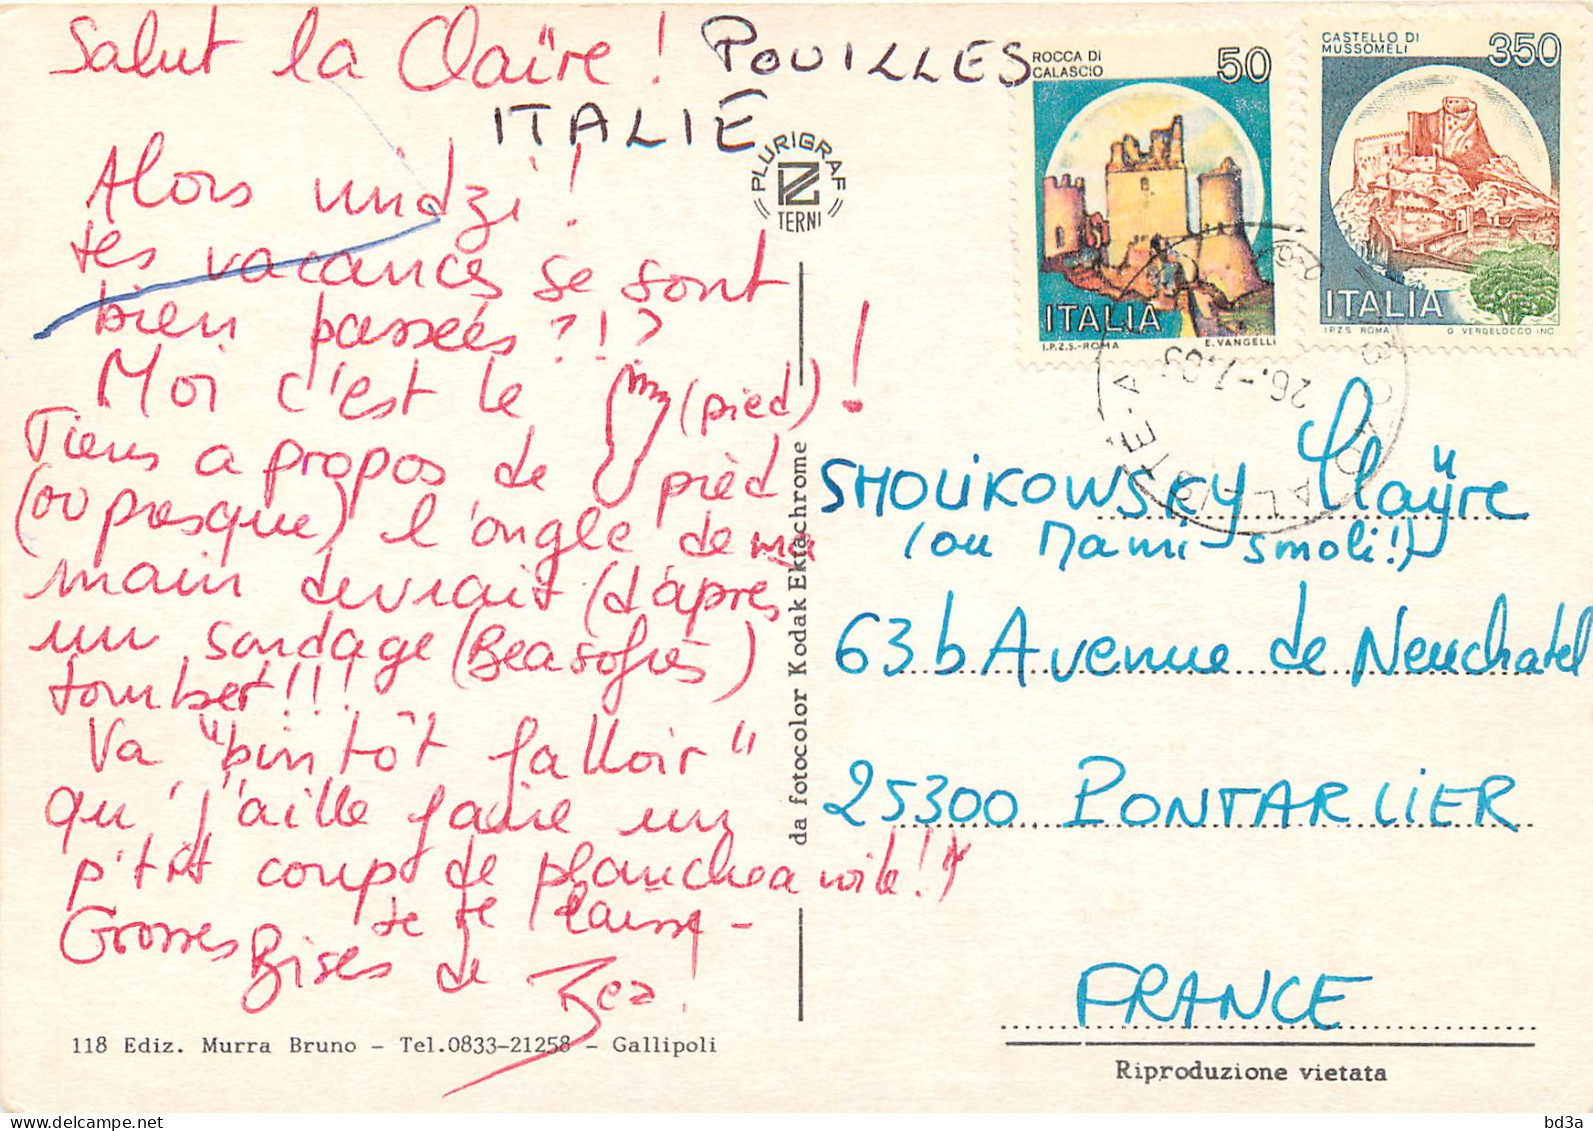 Salut la Claïre !
POUILLES
ITALIE
Alors undzi !
tes vacances se sont
bien passées ?!?
Moi c'est le (pied) !
Tiens a propos de pied
(ou presque) l'ongle de ma
main devrait (d'après
un sondage (Beasofrès)
tomber !!!
Va "bintôt falloir"
qu'j'aille faire un
p'tit coup de planche a voile !!
Je te laisse -
Grosses Bises de Bea !
118 Ediz. Murra Bruno - Tel.0833-21258 - Gallipoli
PLURIGRAF
TERNI
da fotocolor Kodak Ektachrome
ROCCA DI
CALASCIO
50
ITALIA
I.P.Z.S.-ROMA E. VANGELLI
CASTELLO DI
MUSSOMELI
350
ITALIA
I.P.Z.S. ROMA G. VERDELOCCO INC.
26.-7.89
SMOLIKOWSKY Claÿre
(ou Mami smoli!)
63b Avenue de Neuchatel
25300 PONTARLIER
FRANCE
Riproduzione vietata
bd3a